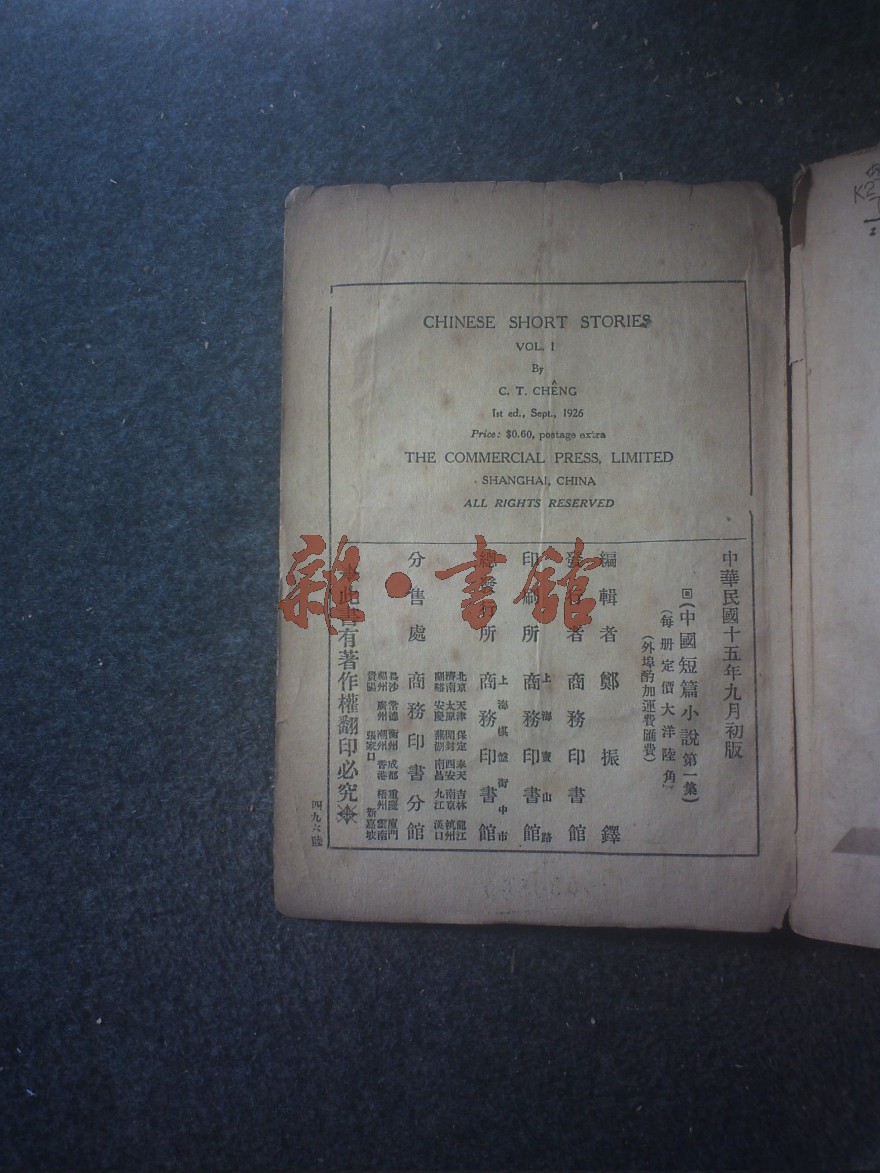 CHINESE SHORT STORIES
VOL. I
By
C. T. CHÊNG
1st ed., Sept., 1926
Price: $0.60, postage extra
THE COMMERCIAL PRESS, LIMITED
SHANGHAI, CHINA
ALL RIGHTS RESERVED
中華民國十五年九月初版
(中國短篇小說第一集)
(每册定價大洋陸角)
(外埠酌加運費匯費)
編輯者 鄭振鐸
發行者 商務印書館
上海寶山路
印刷所 商務印書館
上海棋盤街中市
總發行所 商務印書館
北京 天津 保定 奉天 吉林 龍江
濟南 太原 開封 西安 南京 杭州
蘭谿 安慶 蕪湖 南昌 九江 漢口
分售處 商務印書分館
長沙 常德 衡州 成都 重慶 廈門
福州 廣州 潮州 香港 梧州 雲南
貴陽 張家口 新嘉坡
此書有著作權翻印必究
四九六
雜·書館